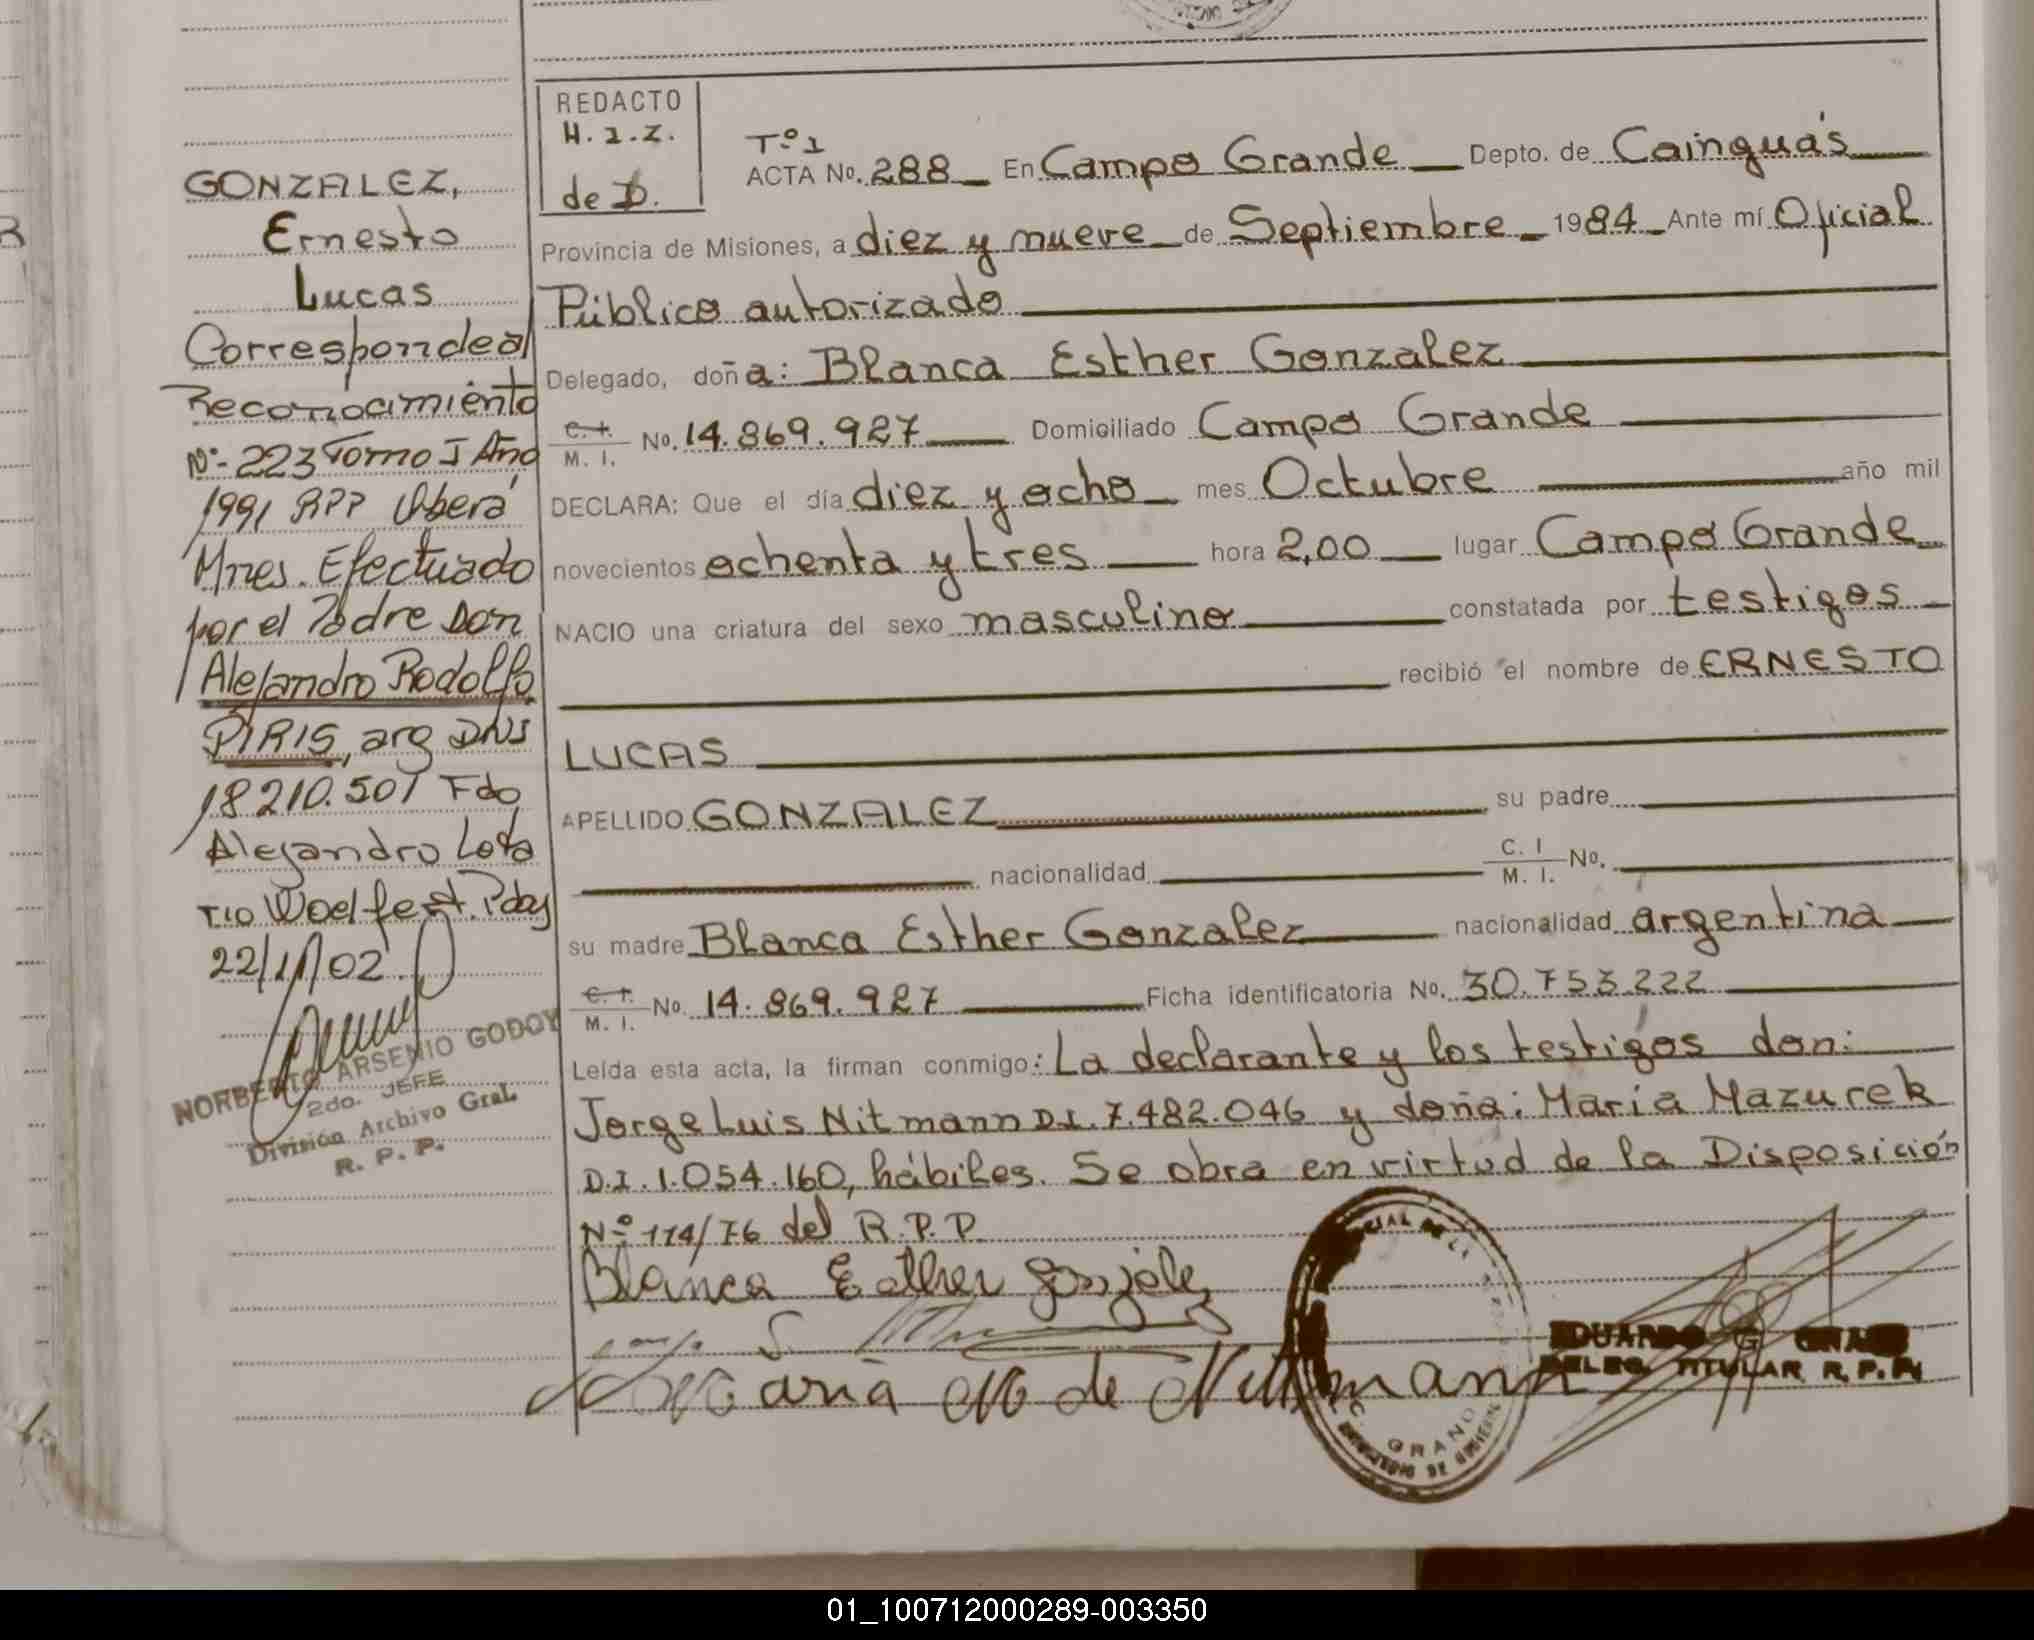 GONZALEZ,
Ernesto
Lucas
Corresponde al
Reconocimiento
Nº 223 Tomo I Año
1991 RPP Oberá
Mnes. Efectuado
por el Padre Don
Alejandro Rodolfo
PIRIS, arg DNI
18210.501 Fdo
Alejandro
Pdas
22/11/02
NORBERTO ARSENIO GODOY
2do. JEFE
División Archivo Gral.
R. P. P.
REDACTO
H. I. Z.
de D.
Tº 1
ACTA No. 288 En Campo Grande Depto. de Cainguás
Provincia de Misiones, a diez y nueve de Septiembre 1984 Ante mí Oficial
Público autorizado
Delegado, doña: Blanca Esther Gonzalez
C. I. M. I. No. 14.869.927 Domiciliado Campo Grande
DECLARA: Que el día diez y ocho mes Octubre año mil
novecientos ochenta y tres hora 2,00 lugar Campo Grande
NACIO una criatura del sexo masculino constatada por testigos
recibió el nombre de ERNESTO
LUCAS
APELLIDO GONZALEZ su padre
nacionalidad C. I M. I. No.
su madre Blanca Esther Gonzalez nacionalidad argentina
C. I. M. I. No. 14.869.927 Ficha identificatoria No. 30.753.222
Leída esta acta, la firman conmigo: La declarante y los testigos don:
Jorge Luis Nitmann D.I. 7.482.046 y doña: María Mazurek
D.I. 1.054.160, hábiles. Se obra en virtud de la Disposición
Nº 114/76 del R.P.P.
Blanca Esther Gonzalez
Maria M de Nittmann
EDUARDO G
DELEG. TITULAR R.P.P.
01_100712000289-003350